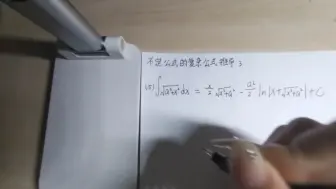 不定公式的复杂公式推导 3
(5) ∫√(x²+a²) dx = x/2 √(x²+a²) - a²/2 ln|x+√(x²+a²)|+C